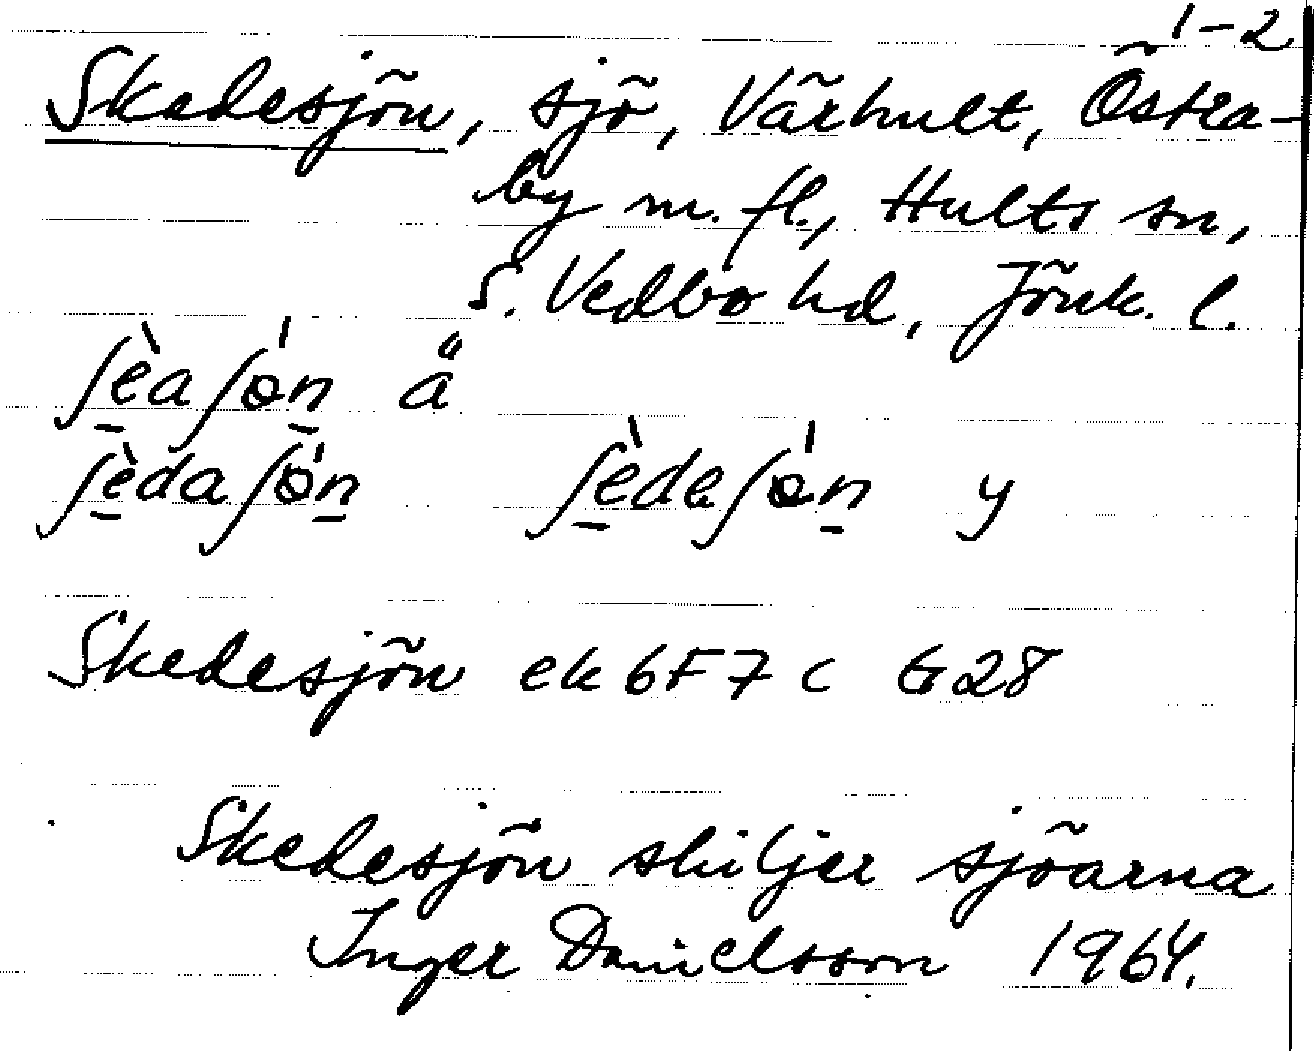 1-2
Skedesjön, sjö, Värhult, Östra-
by m. fl., Hults sn,
S. Vedbo hd, Jönk. l.
ʃè̱aʃɵ́ṉ ä
ʃè̱daʃɵ́ṉ ʃè̱deʃɵ́ṉ y
Skedesjön ek 6F7c G28
Skedesjön skiljer sjöarna
Inger Danielsson 1964.